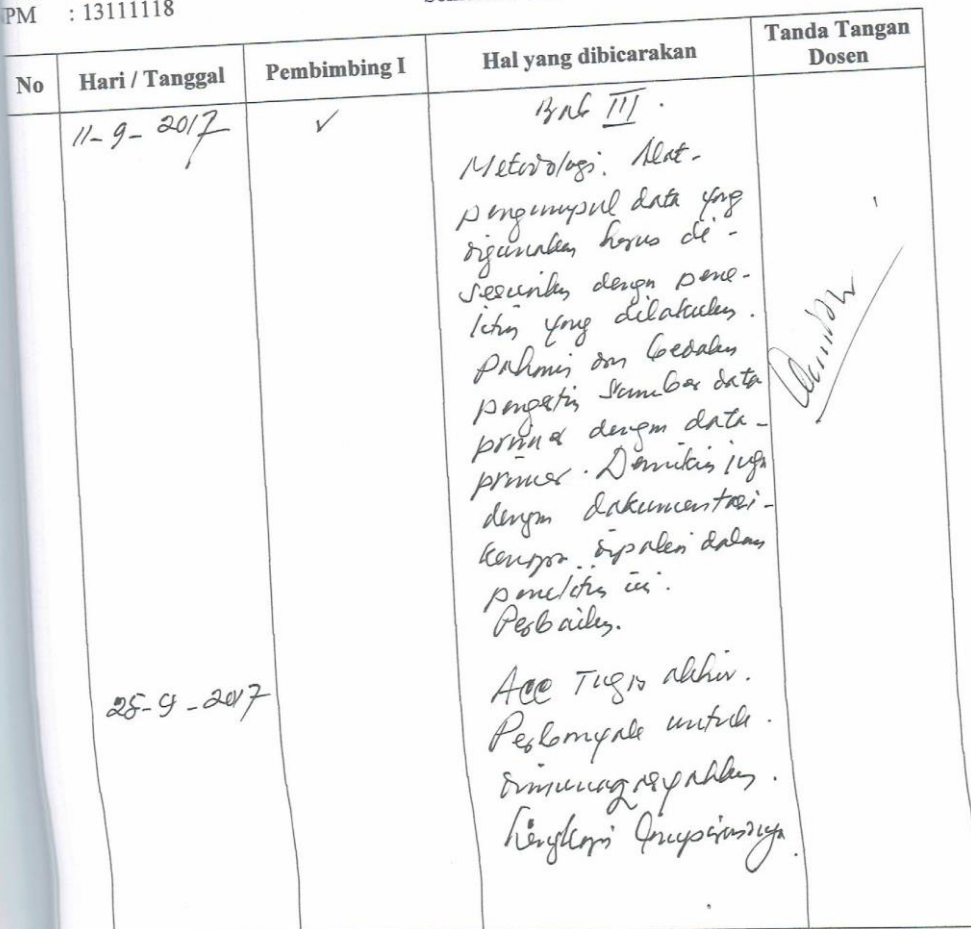 PM : 13111118
No Hari / Tanggal Pembimbing I Hal yang dibicarakan Tanda Tangan Dosen
11-9-2017 ✓ Bab III.
Metodologi. Alat-
pengumpul data yang
digunakan harus di-
sesuaikan dengan pene-
litian yang dilakukan.
Pahami dan bedakan
pengertian sumber data
primer dengan data-
primer. Demikian juga
dengan dokumentasi-
kenapa dipakai dalam
penelitian ini.
Perbaiki.
25-9-2017 Acc Tugas akhir.
Perbanyak untuk
dimunaqasyahkan.